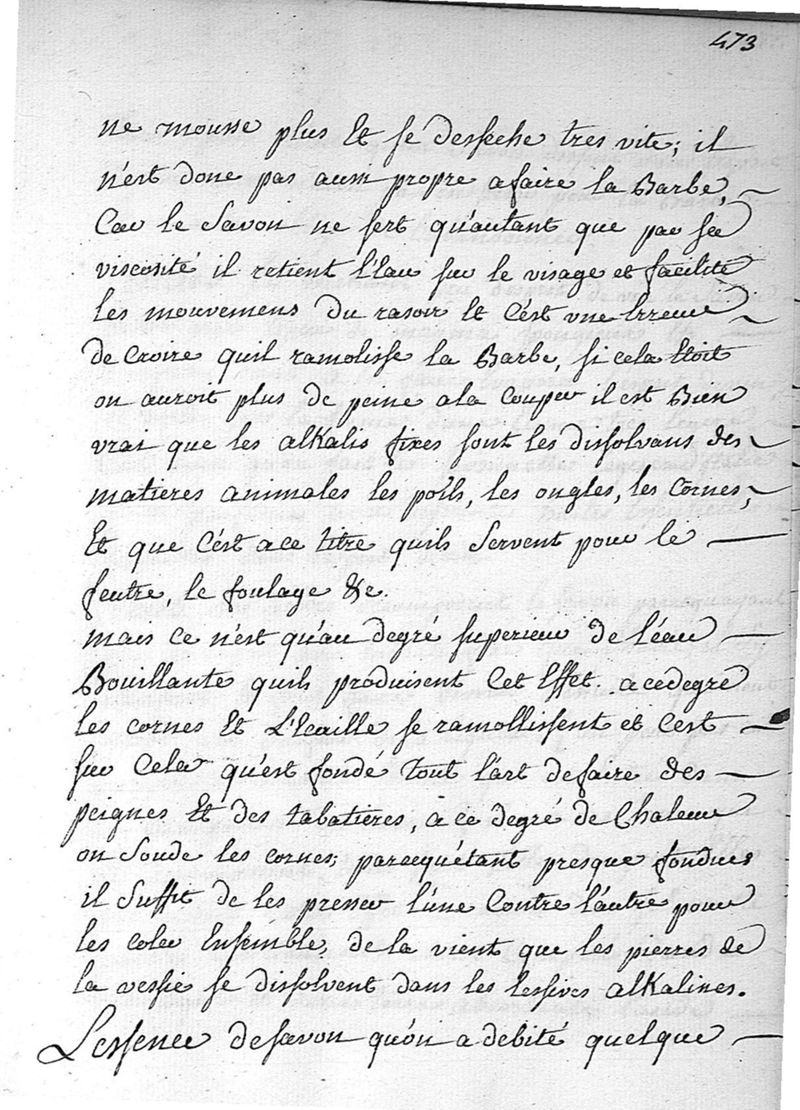 473
ne mousse plus Et se desseche tres vite; il
n'est donc pas aussi propre a faire la Barbe,
Car le Savon ne sert qu'autant que par sa
viscosité il retient l'Eau sur le visage et facilite
les mouvemens du rasoir Et C'est vne Erreur
de Croire quil ramolisse la Barbe, si cela Etoit
on auroit plus de peine ala Couper il est Bien
vrai que les alKalis fixes sont les dissolvans des
matieres animales les poils, les ongles, les Cornes,
Et que C'est a ce titre quils Servent pour le
feutre, le foulage &c.
mais Ce n'est qu'au degré superieur de l'éau
Bouillante quils produisent Cet Effet. a ce degré
les cornes Et L'Ecaille se ramollissent et C'est
sur Cela qu'est fondé Tout l'art de faire des
peignes Et des tabatieres, a ce degré de Chaleur
on Soude les cornes; parcequ'étant presque fondues
il Suffit de les presser l'une Contre l'autre pour
les coler Ensemble, de la vient que les pierres de
la vessie se dissolvent dans les lessives alKalines.
L'essence de savon qu'on a debité quelque